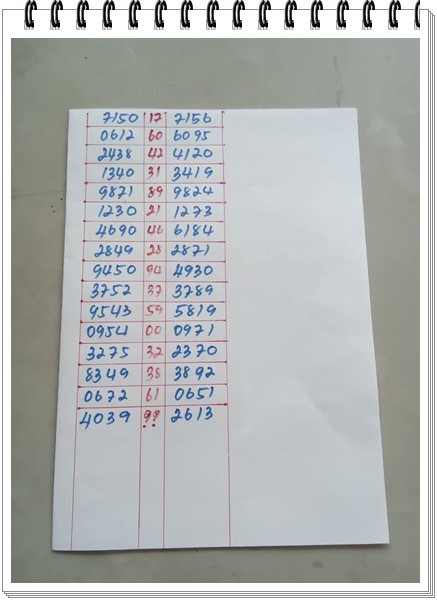 7150 17 7156
0612 60 6095
2438 42 4120
1340 31 3419
9871 89 9824
1230 21 1273
4690 46 6184
2849 28 2871
9450 94 4930
3752 37 3789
9543 59 5819
0954 00 0971
3275 32 2370
8349 38 3892
0672 61 0651
4039 ?? 2613